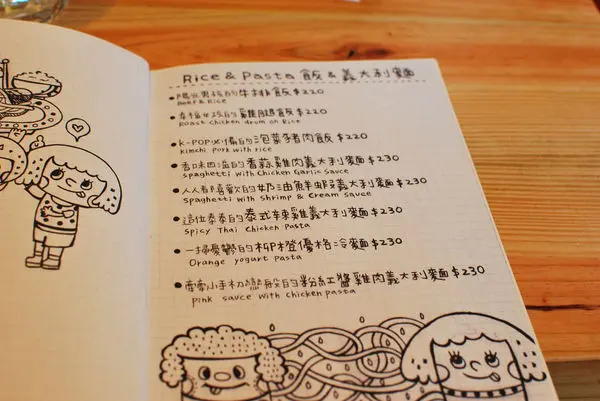 Rice & Pasta 飯 & 義大利麵
陽光男孩的牛排飯$220
Beef & Rice
幸福女孩的雞腿飯$220
Roast Chicken drum on Rice
K-POP必備的泡菜豬肉飯$220
Kimchi Pork with rice
香味四溢的香蒜雞肉義大利麵$230
spaghetti with Chicken Garlic Sauce
人人喜歡的奶油鮮蝦義大利麵$230
spaghetti with Shrimp & Cream Sauce
這位泰泰的泰式辣雞義大利麵$230
Spicy Thai Chicken Pasta
一掃憂鬱的柳橙優格冷麵$230
Orange yogurt pasta
牽牽小手初戀般的粉紅醬雞肉義大利麵$230
pink sauce with chicken pasta